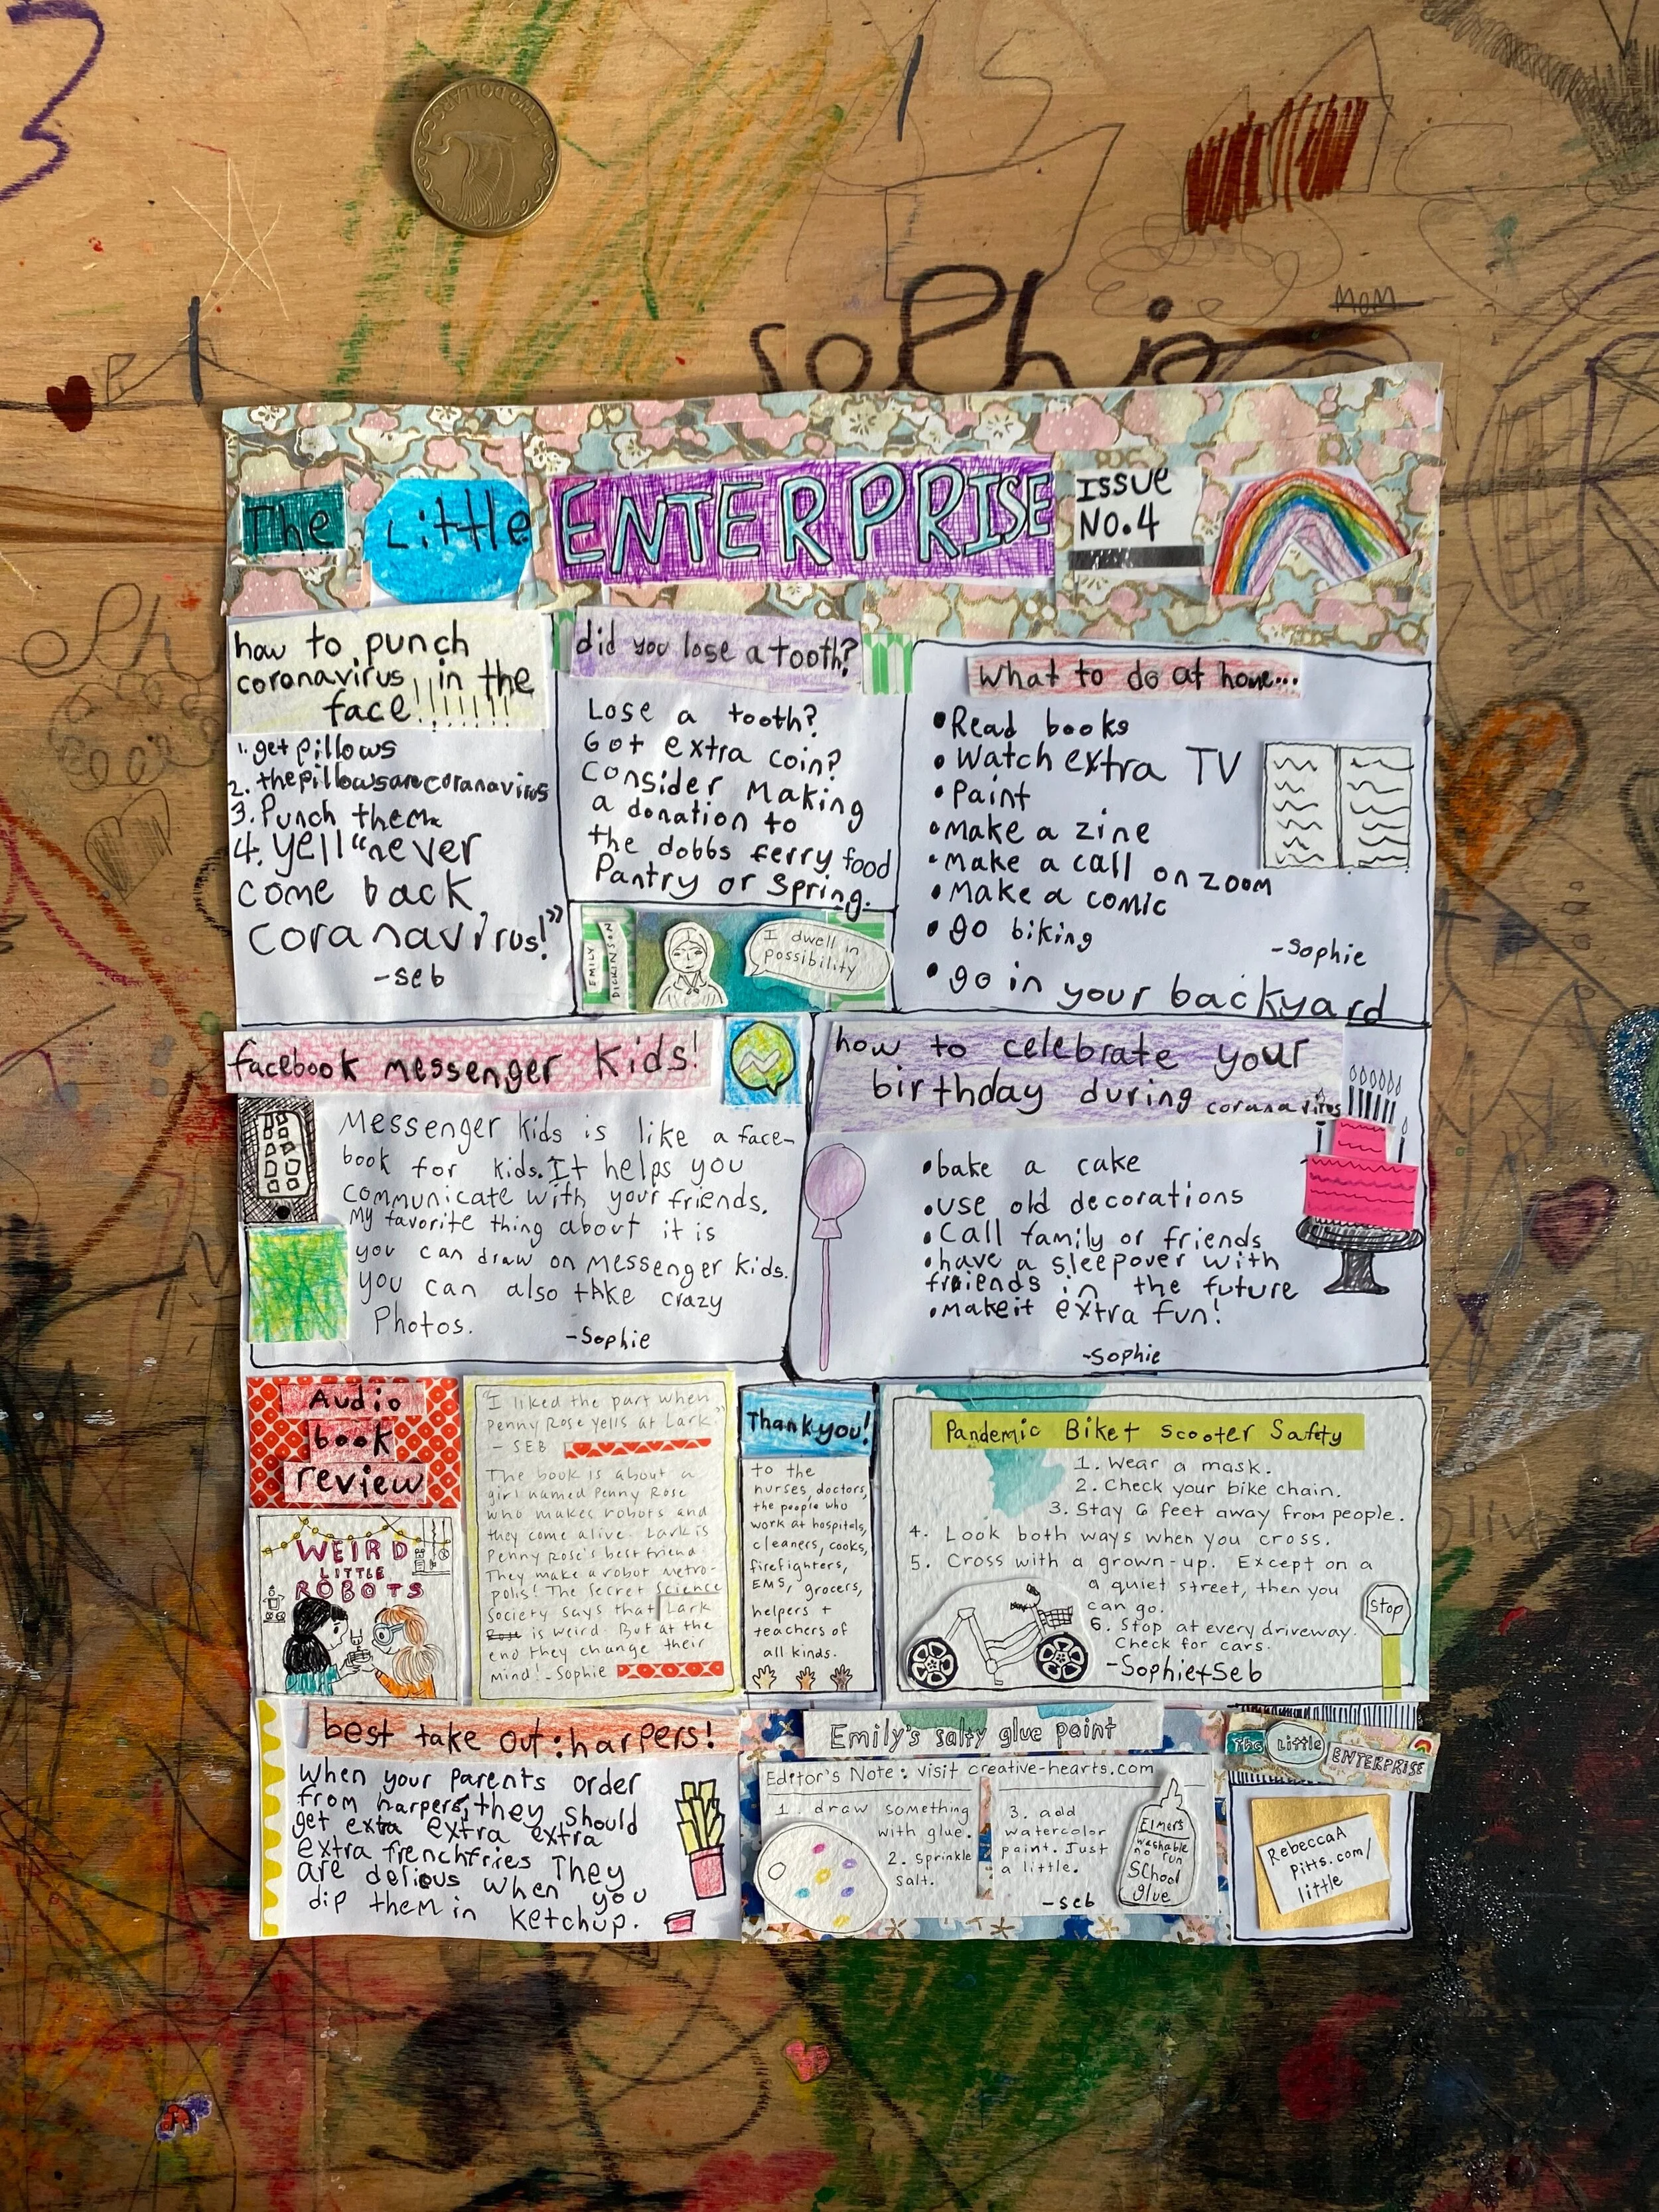 3
TWO DOLLARS
MOM
Sophie
The Little ENTERPRISE
ISSUE
NO.4
how to punch
coronavirus in the
face!!!!!!!
1. get pillows
2. the pillows are coranavirus
3. Punch them
4. yell "never
come back
coranavirus!"
-seb
did you lose a tooth?
Lose a tooth?
Got extra coin?
Consider Making
a donation to
the dobbs ferry food
Pantry or Spring.
EMILY
DICKINSON
I dwell in
possibility
What to do at home...
•Read books
•Watch extra TV
•Paint
•Make a zine
•Make a call on zoom
•Make a comic
•go biking
-Sophie
•go in your backyard
facebook messenger kids!
Messenger kids is like a face-
book for kids. It helps you
communicate with your friends.
My favorite thing about it is
you can draw on messenger kids.
you can also take crazy
Photos.
-Sophie
how to celebrate your
birthday during coranavirus
•bake a cake
•use old decorations
•Call family or friends
•have a sleepover with
friends in the future
•make it extra fun!
-Sophie
Audio
book
review
WEIRD
LITTLE
ROBOTS
"I liked the part when
Penny Rose yells at Lark."
- SEB
The book is about a
girl named Penny Rose
who makes robots and
they come alive. Lark is
Penny Rose's best friend
They make a robot metro-
polis! The Secret Science
Society says that Lark
is weird. But at the
end they change their
mind!-Sophie
Thank you!
to the
nurses, doctors,
the people who
work at hospitals,
cleaners, cooks,
firefighters,
EMS, grocers,
helpers +
teachers of
all kinds.
Pandemic Bike + Scooter Safety
1. Wear a mask.
2. Check your bike chain.
3. Stay 6 feet away from people.
4. Look both ways when you cross.
5. Cross with a grown-up. Except on a
a quiet street, then you
can go.
6. Stop at every driveway.
Check for cars.
-Sophie+Seb
Stop
best take out: harpers!
When your parents order
from harpers, they should
get extra extra extra
extra frenchfries They
are delious when you
dip them in ketchup.
Emily's salty glue paint
Editor's Note: visit creative-hearts.com
1. draw something
with glue.
2. Sprinkle
salt.
3. add
watercolor
paint. Just
a little.
-seb
Elmers
washable
no run
School
glue
The Little
ENTERPRISE
RebeccaA
Pitts.com/
little